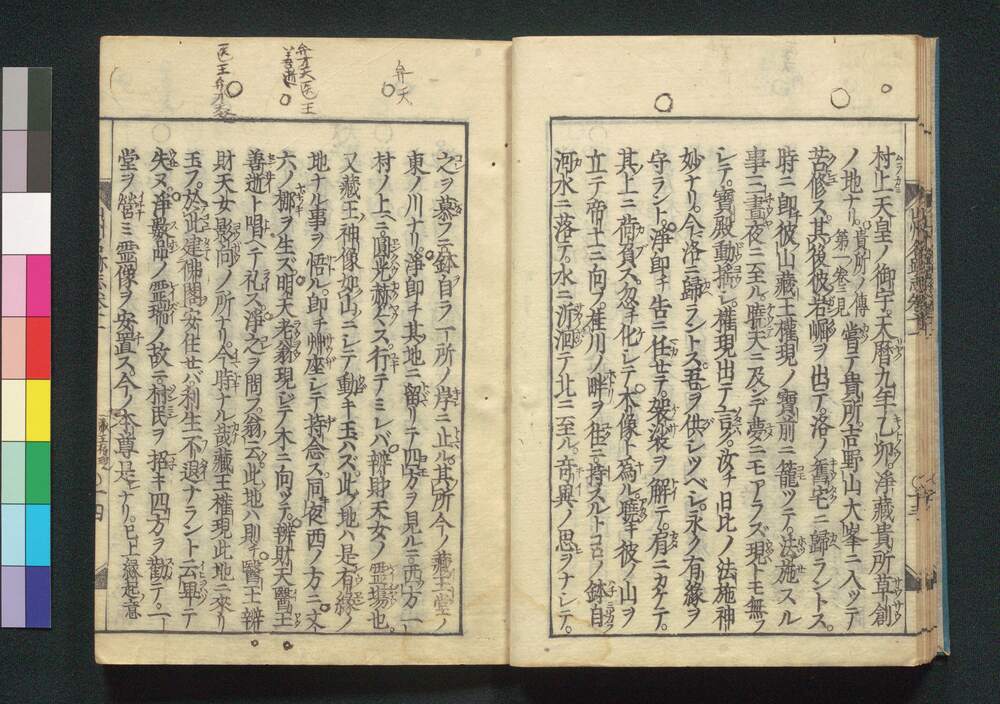 村上天皇ノ御宇天暦九年乙卯。浄藏貴所草創
ノ地ナリ。貴所ノ傳第一巻ニ見 嘗テ貴所。吉野山大峯ニ入ッテ
苦修ス。其後彼岩崛ヲ出テ。洛ノ舊宅ニ歸ラントス。
時ニ即彼山藏王權現ノ寶前ニ籠ッテ。法施スル
事三晝夜ニ至ル。曉天ニ及ンデ夢ニモアラズ現トモ無フ
シテ。寶殿動揺シ。權現出テ言ク。汝チ日比ノ法施神
妙ナリ。今洛ニ歸ラントス。吾ヲ供シツベシ。永ク有縁ヲ
守ラント。浄即チ告ニ任セテ。袈裟ヲ解テ。肩ニカケテ。
其上ニ荷負ス。忽チ化シテ。木像ト為ル。曉キ彼ノ山ヲ
立テ帝十ニ向フ。桂川ノ畔ヲ往ニ。持スルトコロノ鉢自
河水ニ落テ。水ニ泝洄テ北ニ至ル。奇異ノ思ヲナシテ。
之ヲ慕フニ鉢自ラ一所ノ岸ニ止ル。其所今ノ藏王堂ノ
東ノ川ナリ。浄即チ其地ニ留リテ四方ヲ見ルニ。西方一
村ノ上ニ圓光赫ヘス。行テミレバ。辨財天女ノ霊場也。
又藏王神像如山ニシテ動キ玉ハズ。此ノ地ハ是有縁ノ
地ナル事ヲ悟ル。即チ艸座シテ持念ス。同夜西ノ方二丈
六ノ梛ヲ生ズ。明天老翁現シテ木ニ向ッテ。辨財天醫王
善逝ト唱ヘテ礼ス。浄之ヲ問フ。翁云。此地ハ則チ醫王辨
財天女影向ノ所ナリ。今時ナル哉藏王權現此地ニ來リ
玉フ。於此建佛閣安住セバ。利生不退ナラント云畢テ
失ヌ。浄數品ノ霊瑞ノ故テ。村民ヲ招キ四方ヲ勸テ。一
堂ヲ營ミ霊像ヲ安置ス。今ノ本尊是ナリ。已上縁起意
弁天
弁才天医王
善逝
医王弁才天
藏王権現
十四